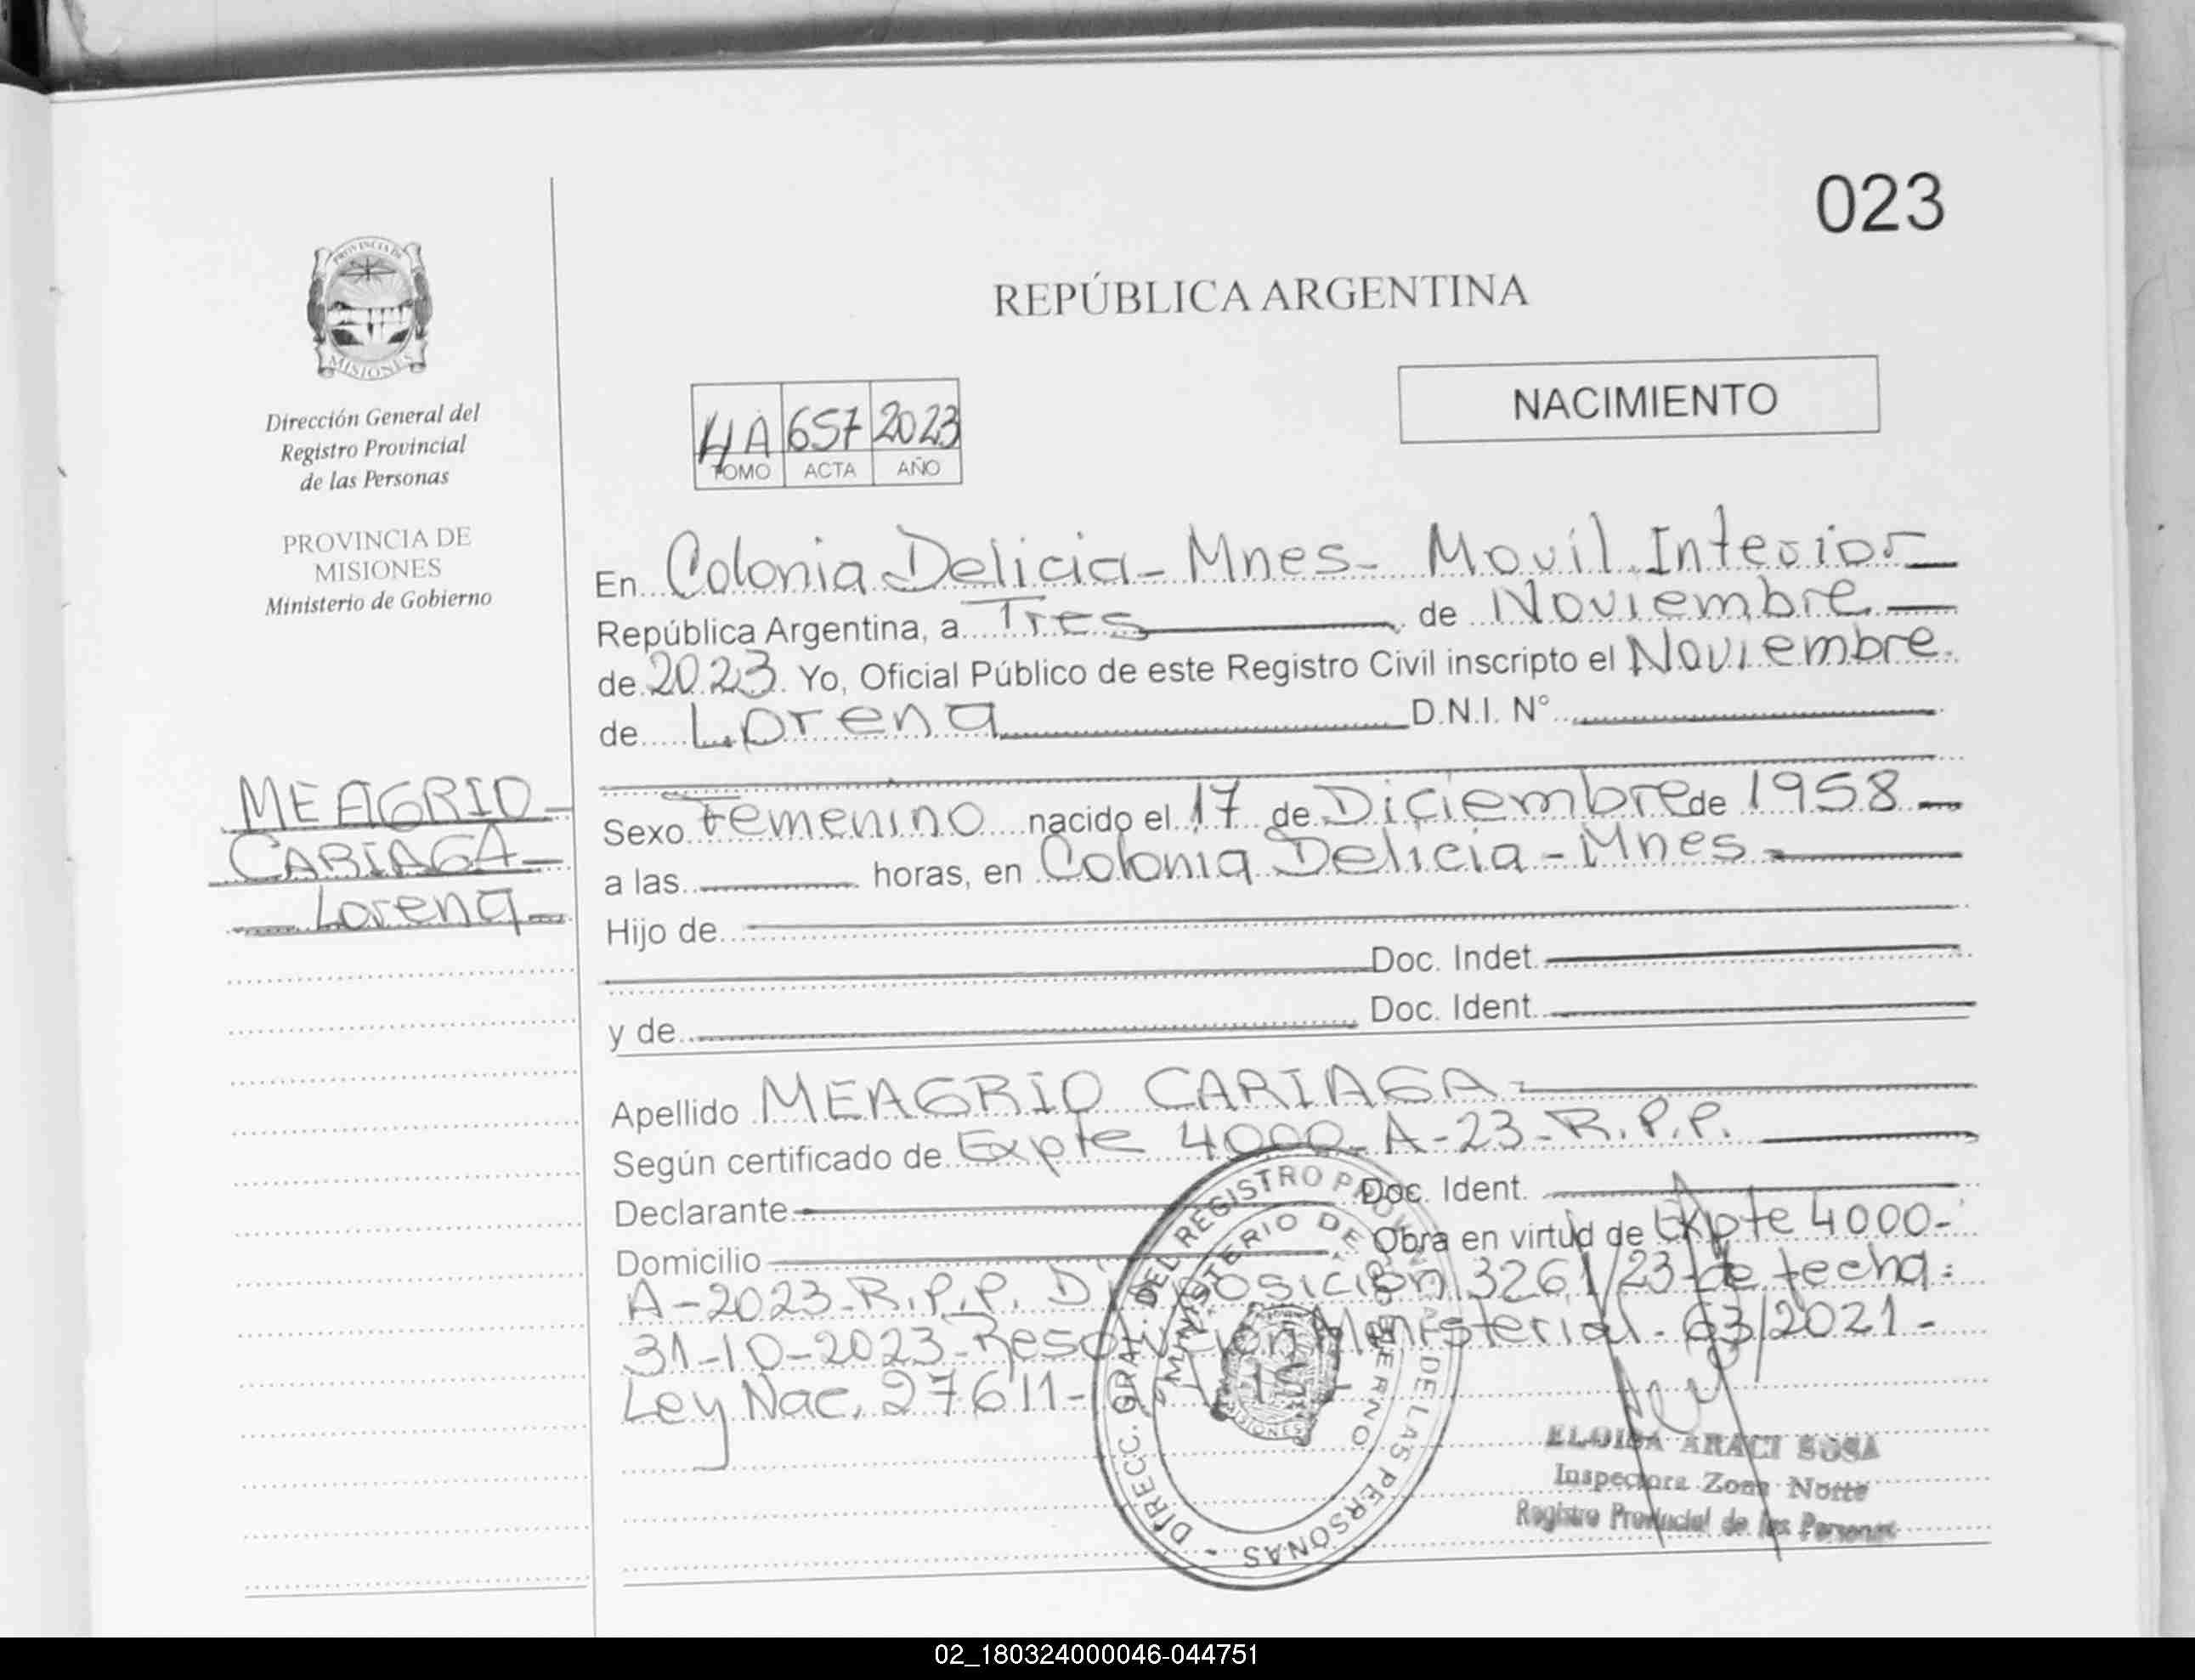 023
PROVINCIA DE
MISIONES
Dirección General del
Registro Provincial
de las Personas
PROVINCIA DE
MISIONES
Ministerio de Gobierno
MEAGRIO
CARIAGA
Lorena
REPÚBLICA ARGENTINA
NACIMIENTO
4A 657 2023
TOMO ACTA AÑO
En Colonia Delicia - Mnes - Movil Interior
República Argentina, a Tres de Noviembre
de 2023. Yo, Oficial Público de este Registro Civil inscripto el Noviembre
de Lorena D.N.I. N°
Sexo Femenino nacido el 17 de Diciembre de 1958
a las horas, en Colonia Delicia - Mnes -
Hijo de
Doc. Indet.
y de Doc. Ident.
Apellido MEAGRIO CARIAGA -
Según certificado de Expte 4000-A-23-R.P.P.
Declarante Doc. Ident.
Domicilio Obra en virtud de Expte 4000-
A-2023-R.P.P. Disposición 3261/23 de fecha:
31-10-2023-Resolución Ministerial - 63/2021 -
Ley Nac. 27611-
DIRECC. GRAL. DEL REGISTRO PROVINCIAL DE LAS PERSONAS -
MINISTERIO DE GOBIERNO
ELOISA ARACI SOSA
Inspectora Zona Norte
Registro Provincial de las Personas
02_180324000046-044751